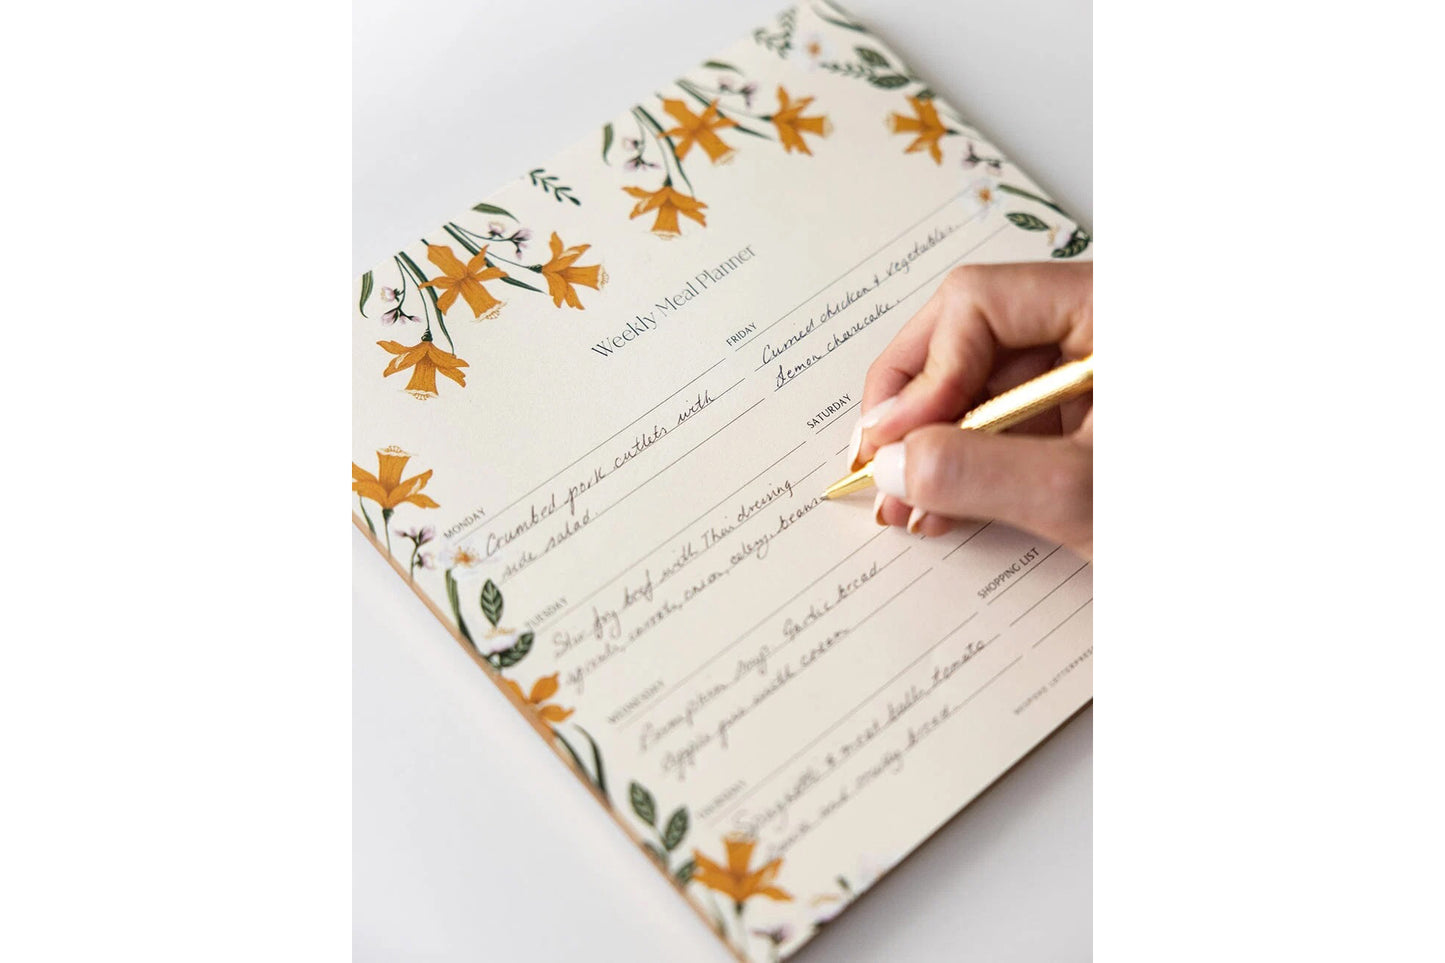 Weekly Meal Planner
MONDAY
Crumbed pork cutlets with
side salad.
TUESDAY
Stir fry beef with Thai dressing
carrots, onion, celery, beans
WEDNESDAY
Pumpkin soup. Garlic bread
Apple pie with cream
THURSDAY
Spaghetti & meat balls tomato
and crusty bread.
FRIDAY
Curried chicken & vegetables.
Lemon cheesecake.
SATURDAY
SHOPPING LIST
BESPOKE LETTERPRESS